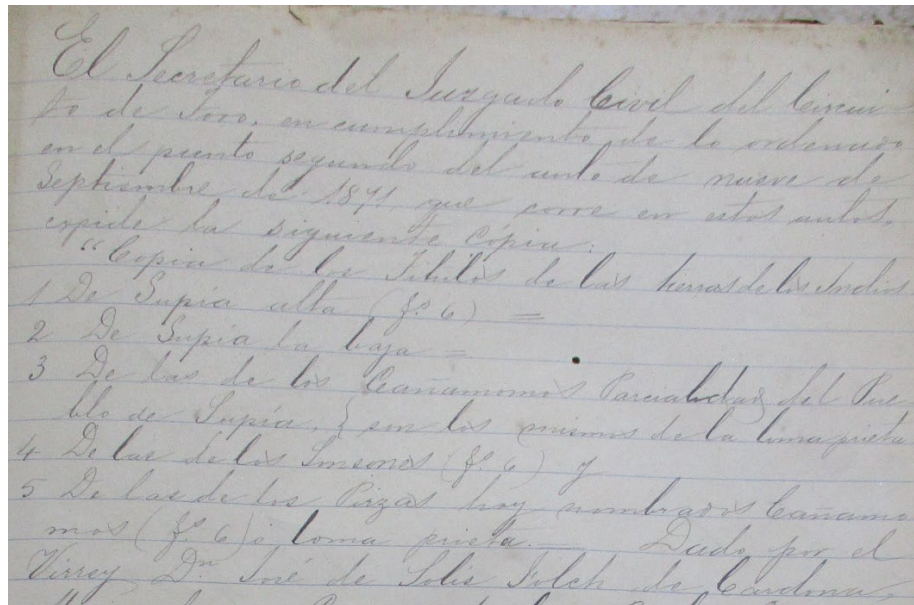 El Secretario del Juzgado Civil del Circui
to de Toro, en cumplimiento de lo ordenado
en el punto segundo del auto de nueve de
Septiembre de 1871, que corre en estos autos,
expide la siguiente cópia:
"Copia de los Titulos de las tierras de los Indios
1 De Supía alta (fº 6) =
2 De Supía la baja =
3 De las de los Cañamomos Parcialidad del Pue
blo de Supía, } son los mismos de la loma prieta
4 De las de los (fº 6) y
5 De las de los Pirzas hoy nombrados Cañamo
mos (fº 6) ó loma prieta. — Dado por el
Virrey Dn José de Solis Folch de Cardona,